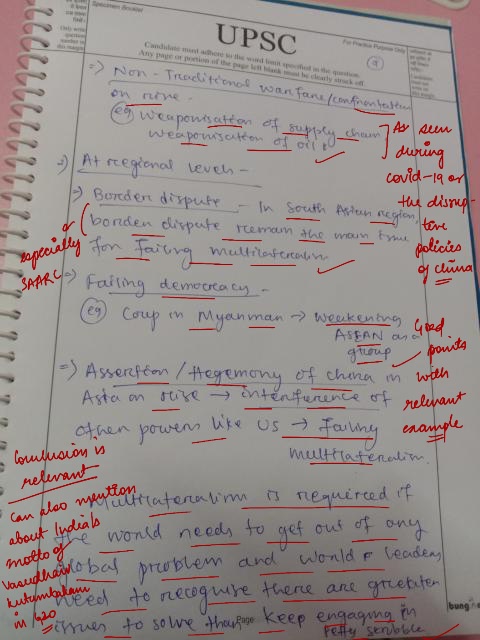 Specimen Booklet
For Practice Purpose Only
UPSC
Candidate must adhere to the word limit specified in the question.
Any page or portion of the page left blank must be clearly struck off.
9
=) Non-Traditional warfare/confrontation
on rise.
eg Weaponisation of supply chain
weaponisation of oil
As seen
during
covid-19 or
the disrup-
tive
policies
of china
=) At regional levels -
=) Border dispute - In South Asian region,
border dispute remain the main issue
for failing multilateralism
especially
SAARC
=) Failing democracy -
eg Coup in Myanmar → weakening
ASEAN as a
group
Good
points
with
relevant
example
=) Assertion/Hegemony of china in
Asia on rise → interference of
other powers like US → Failing
multilateralism.
Conclusion is
relevant
can also mention
about India's
motto of
Vasudhaiv
kutumbakam
in G20
Multilateralism is required if
the world needs to get out of any
global problem and world leaders
need to recognise there are greater
issues to solve than keep engaging in
petty scribble
Page